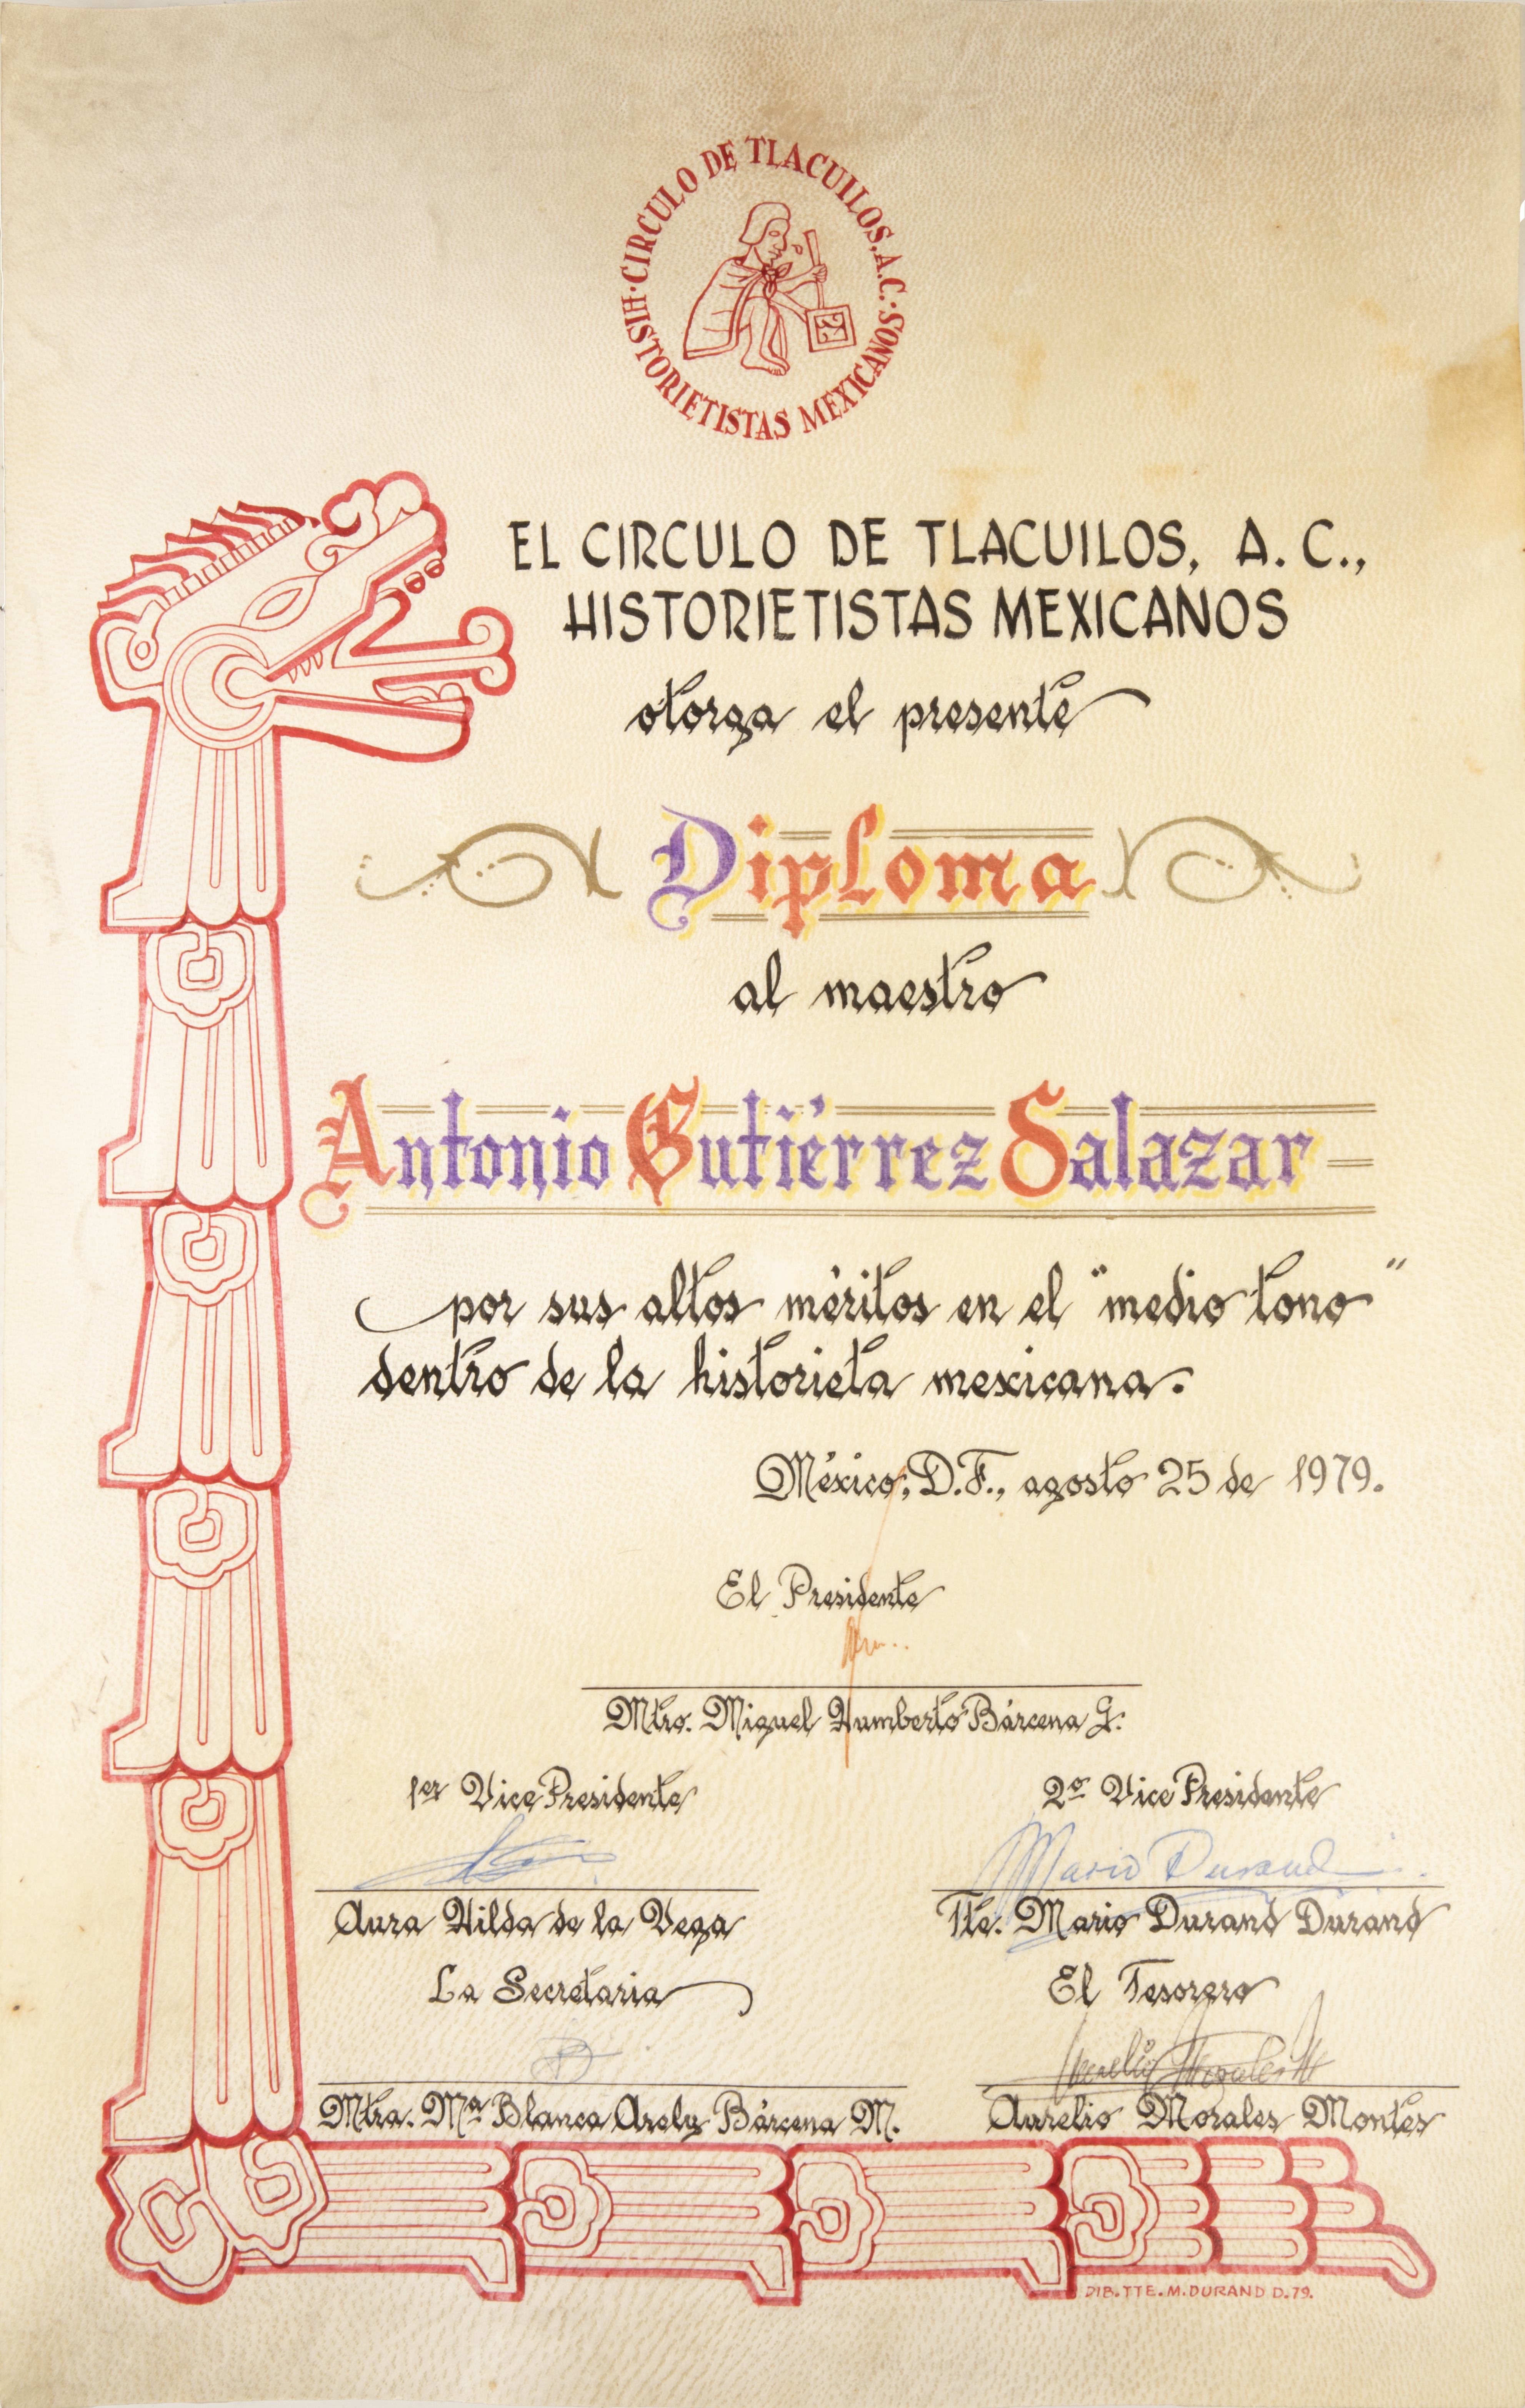 CIRCULO DE TLACUILOS, A.C. · HISTORIETISTAS MEXICANOS ·
EL CIRCULO DE TLACUILOS, A. C.,
HISTORIETISTAS MEXICANOS
otorga el presente
Diploma
al maestro
Antonio Gutiérrez Salazar
por sus altos méritos en el "medio tono"
dentro de la historieta mexicana.
México, D.F., agosto 25 de 1979.
El Presidente
Mtro. Miguel Humberto Bárcena G.
1er Vice Presidente
2º Vice Presidente
Mario Durand
Aura Hilda de la Vega
Tte. Mario Durand Durand
La Secretaria
El Tesorero
Aurelio Morales M
Mtra. Mª Blanca Arely Bárcena M.
Aurelio Morales Montes
DIB. TTE. M. DURAND D. 79.